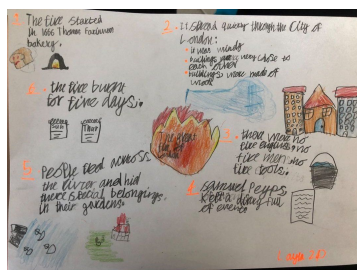 1. The fire started
in 1666 Thomas Farinum
bakery.
2. It spread quickly through the City of
London:
• it was windy
• buildings were very close to
each other
• buildings were made of
wood
6. the fire burnt
for five days.
Sun
Thur
The great
fire of
London
3. there were no
fire engines no
fire men no
fire tools.
5. People fled across
the river and hid
there special belongings
in their gardens.
4. Samuel Pepys
kept a diary full
of